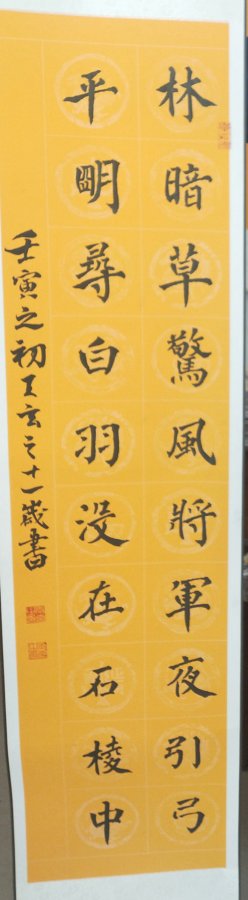 林暗草驚風將軍夜引弓
平明尋白羽沒在石棱中
壬寅之初王玄之十一歲書